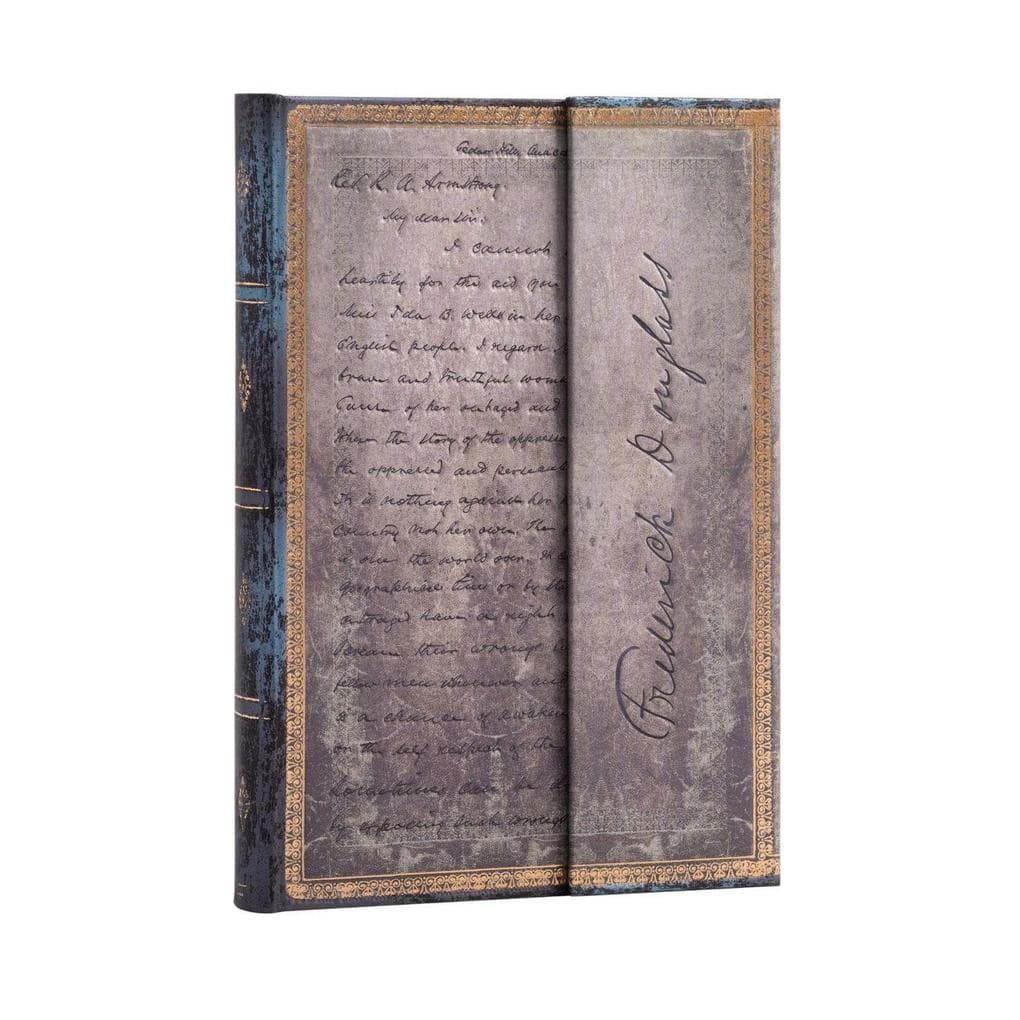 Cedar Hill, Anaco
Rev. R. A. Armstrong.
My dear Sir:
I cannot
heartily for the aid you
Miss Ida B. Wells in her
English people. I regard
brave and truthful woma
Cause of her outraged and
Where the story of the oppresso
the oppressed and persecut
It is nothing against her
Country not her own. The
is over the world over.
geographical lines or by th
outraged have a right
their wrongs
fellow men wherever an
is a chance of awaken
on the self respect of the
Sometimes can be
by opposing such wrongs
Frederick Douglass